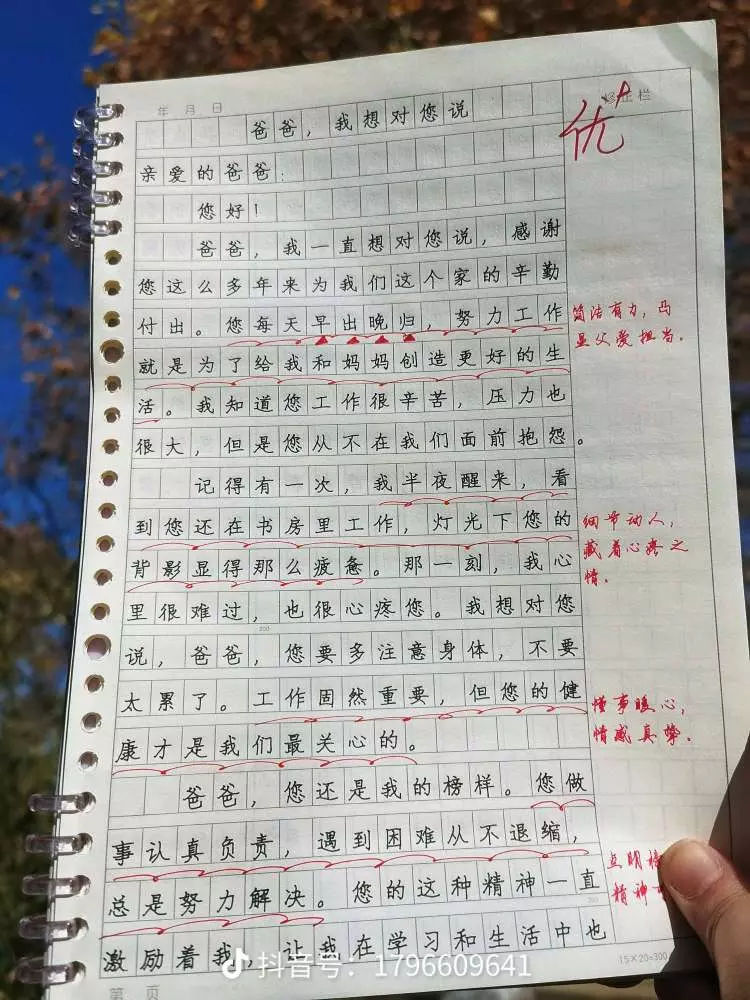 年 月 日
修正栏
优+
爸爸，我想对您说
亲爱的爸爸：
您好！
爸爸，我一直想对您说，感谢
您这么多年来为我们这个家的辛勤
付出。您每天早出晚归，努力工作
简洁有力，凸
显父爱担当。
就是为了给我和妈妈创造更好的生
活。我知道您工作很辛苦，压力也
很大，但是您从不在我们面前抱怨。
记得有一次，我半夜醒来，看
到您还在书房里工作，灯光下您的
细节动人，
藏着心疼之
情。
背影显得那么疲惫。那一刻，我心
里很难过，也很心疼您。我想对您
说，爸爸，您要多注意身体，不要
太累了。工作固然重要，但您的健
懂事暖心，
情感真挚。
康才是我们最关心的。
爸爸，您还是我的榜样。您做
事认真负责，遇到困难从不退缩，
点明榜
精神
总是努力解决。您的这种精神一直
激励着我，让我在学习和生活中也
15×20=300
第 页
抖音号：1796609641